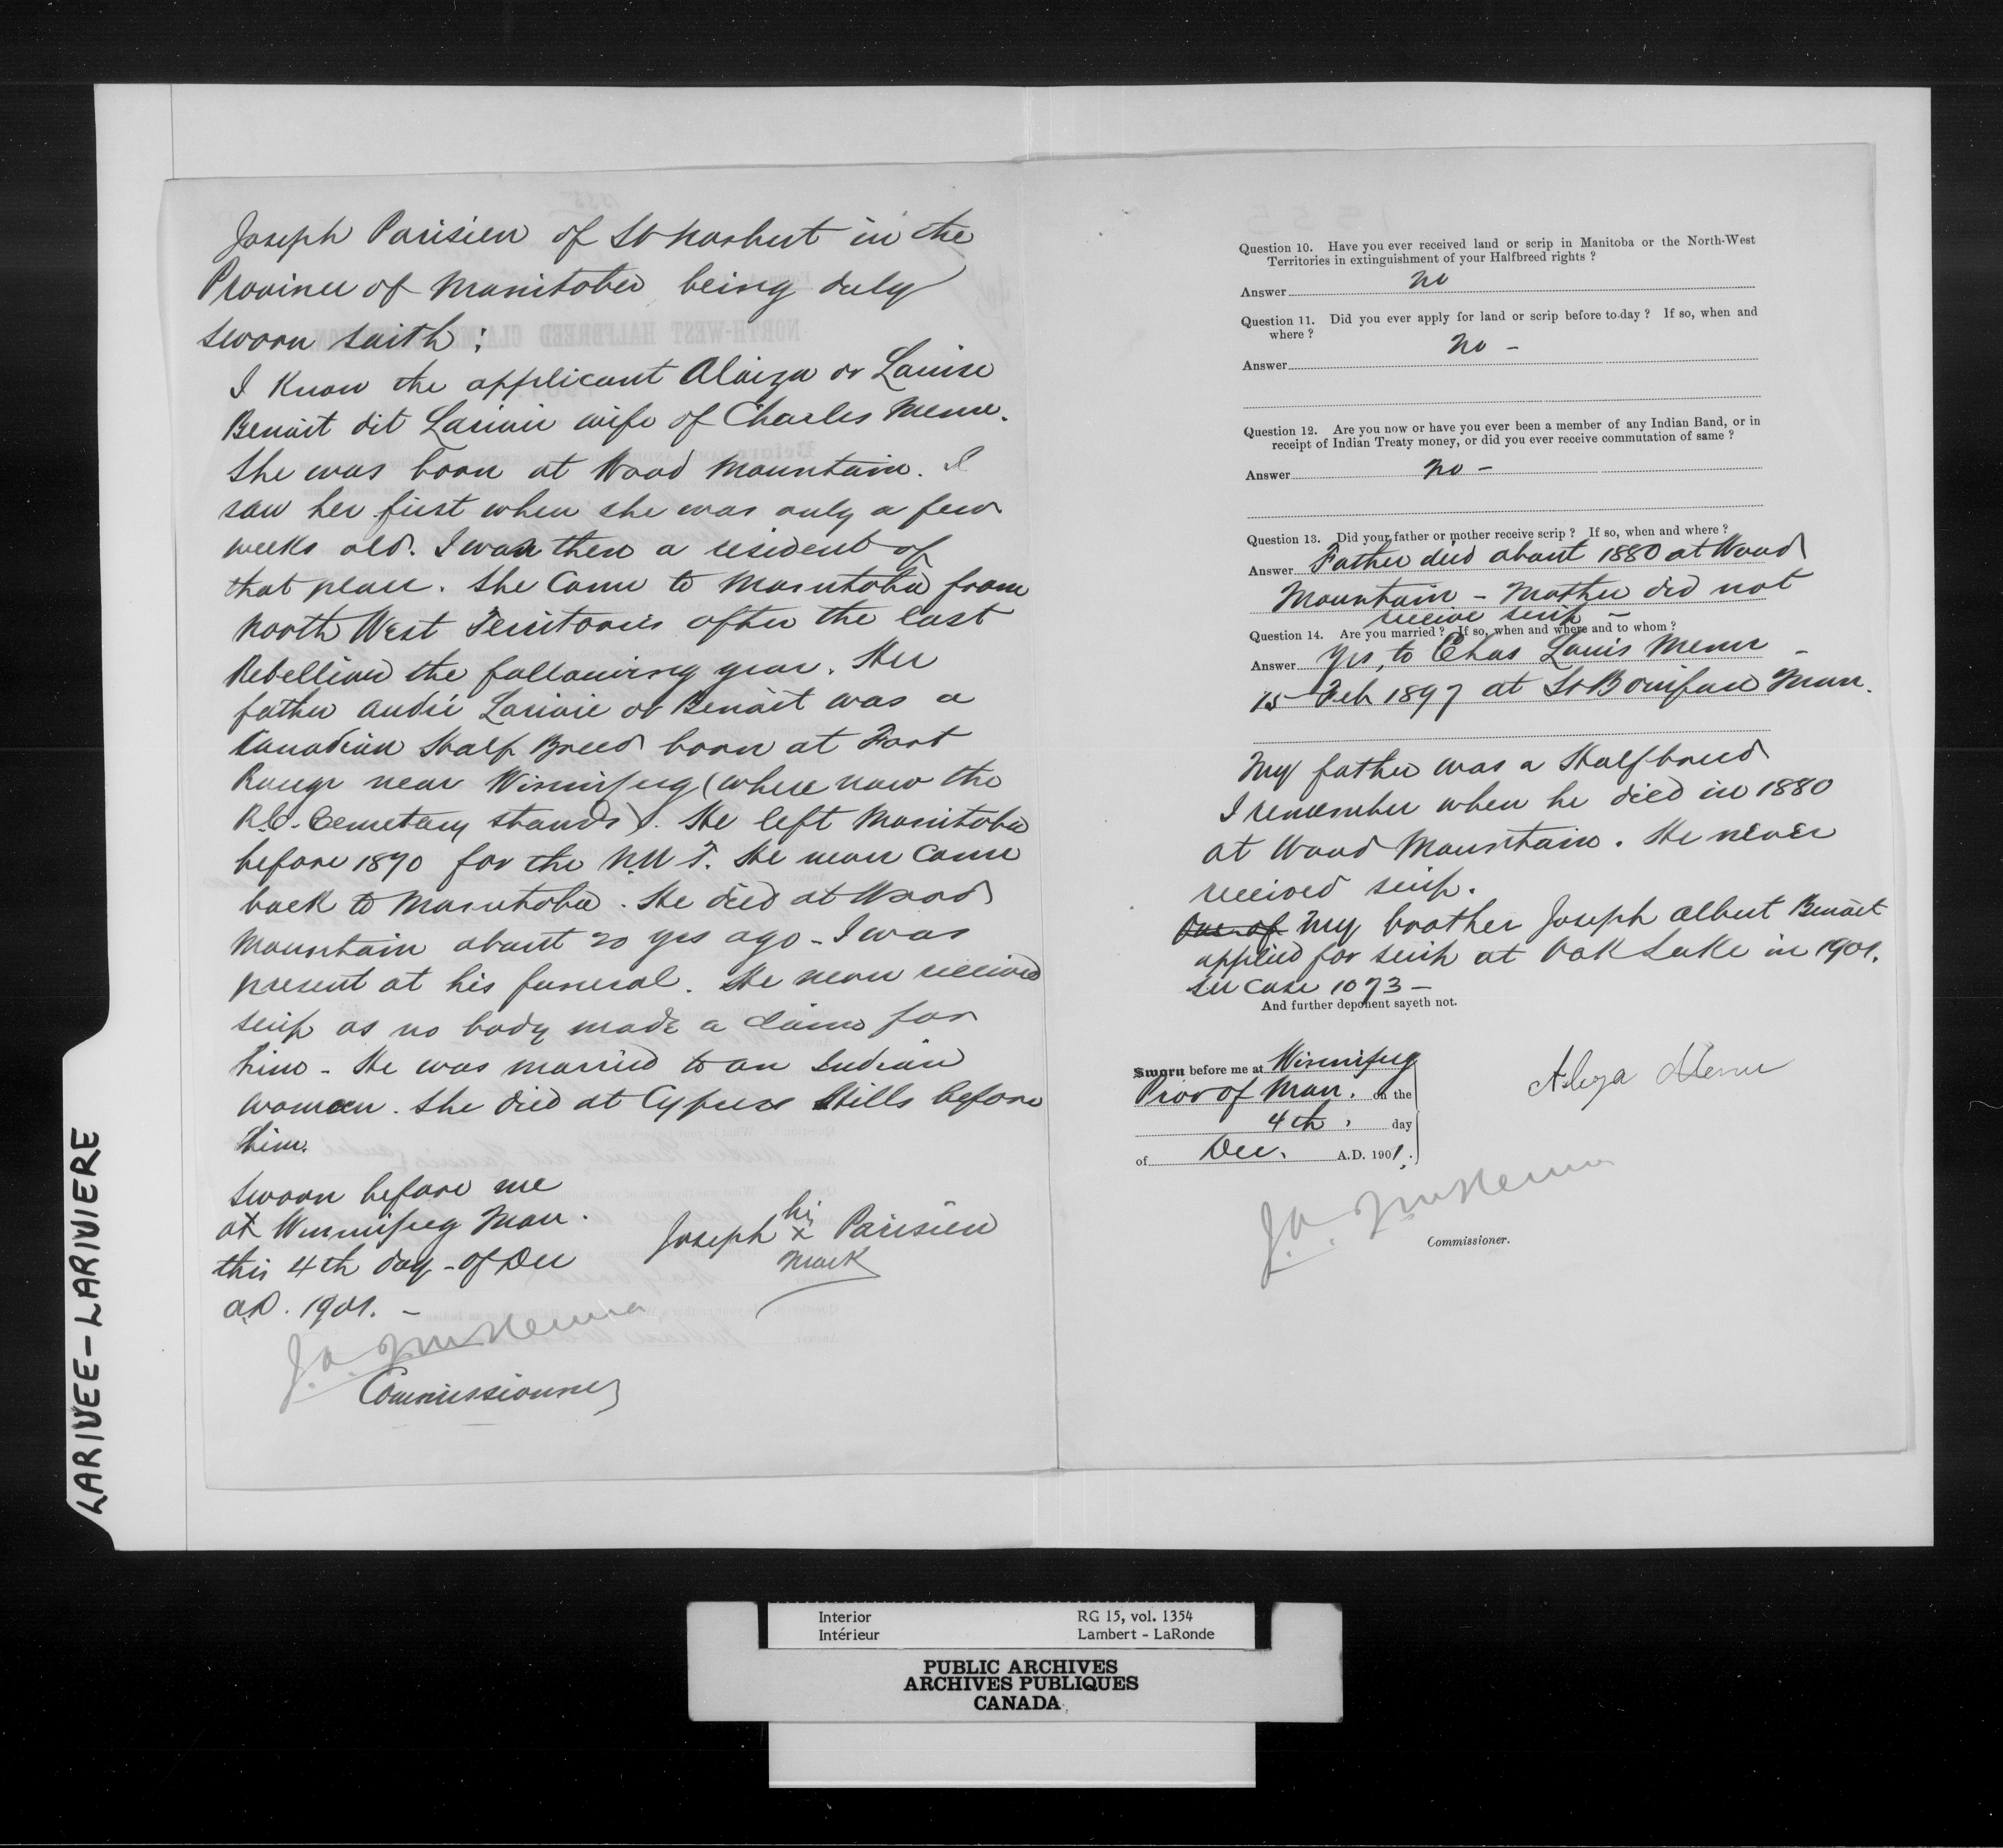 Joseph Parisien of St Norbert in the
Province of Manitoba being duly
sworn saith:
I know the applicant Alaiza or Louise
Benoit dit Larivie wife of Charles Menu.
She was born at Wood Mountain. I
saw her first when she was only a few
weeks old. I was then a resident of
that place. She came to Manitoba from
North West Territories after the last
Rebellion the following year. Her
father André Larivie or Benoit was a
Canadian Half Breed born at Fort
Rouge near Winnipeg (where now the
R.C. Cemetary stands). He left Manitoba
before 1870 for the N.W.T. He never came
back to Manitoba. He died at Wood
Mountain about 20 yrs ago - I was
present at his funeral. He never received
scrip as no body made a claim for
him - He was married to an Indian
woman. She died at Cypress Hills before
him.
Sworn before me
at Winnipeg Man.
this 4th day - of Dec
A.D. 1901. -
Joseph his x mark Parisien
J.A. McKenna
Commissioner
Question 10. Have you ever received land or scrip in Manitoba or the North-West
Territories in extinguishment of your Halfbreed rights ?
Answer no
Question 11. Did you ever apply for land or scrip before to-day ? If so, when and
where ?
Answer no -
Question 12. Are you now or have you ever been a member of any Indian Band, or in
receipt of Indian Treaty money, or did you ever receive commutation of same ?
Answer no -
Question 13. Did your father or mother receive scrip ? If so, when and where ?
Answer Father died about 1880 at Wood
Mountain - Mother did not
receive scrip -
Question 14. Are you married ? If so, when and where and to whom ?
Answer Yes, to Chas Louis Menu -
15 Feb 1897 at St Boniface Man.
My father was a Halfbreed
I remember when he died in 1880
at Wood Mountain. He never
received scrip.
One of My brother Joseph Albert Benoit
applied for scrip at Oak Lake in 1901.
See Case 1073 -
And further deponent sayeth not.
Sworn before me at Winnipeg
Prov of Man. on the
4th. day
of Dec. A.D. 1901.
Aleza Menu
J.A. McKenna
Commissioner.
LARIVEE-LARIVIERE
Interior
Intérieur
RG 15, vol. 1354
Lambert - LaRonde
PUBLIC ARCHIVES
ARCHIVES PUBLIQUES
CANADA